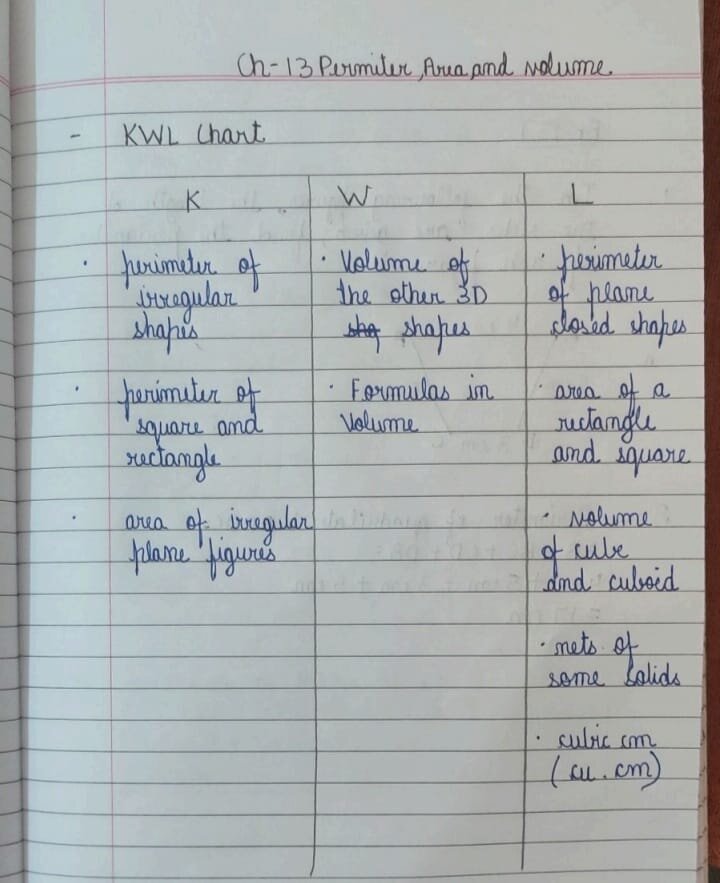 Ch-13 Permiter, Area and volume.
- KWL Chart
K W L
· perimeter of
irregular
shapes
· perimeter of
square and
rectangle
· area of irregular
plane figures
· Volume of
the other 3D
shapes
· Formulas in
Volume
· perimeter
of plane
closed shapes
· area of a
rectangle
and square
· volume
of cube
and cuboid
· nets of
some solids
· cubic cm
(cu. cm)